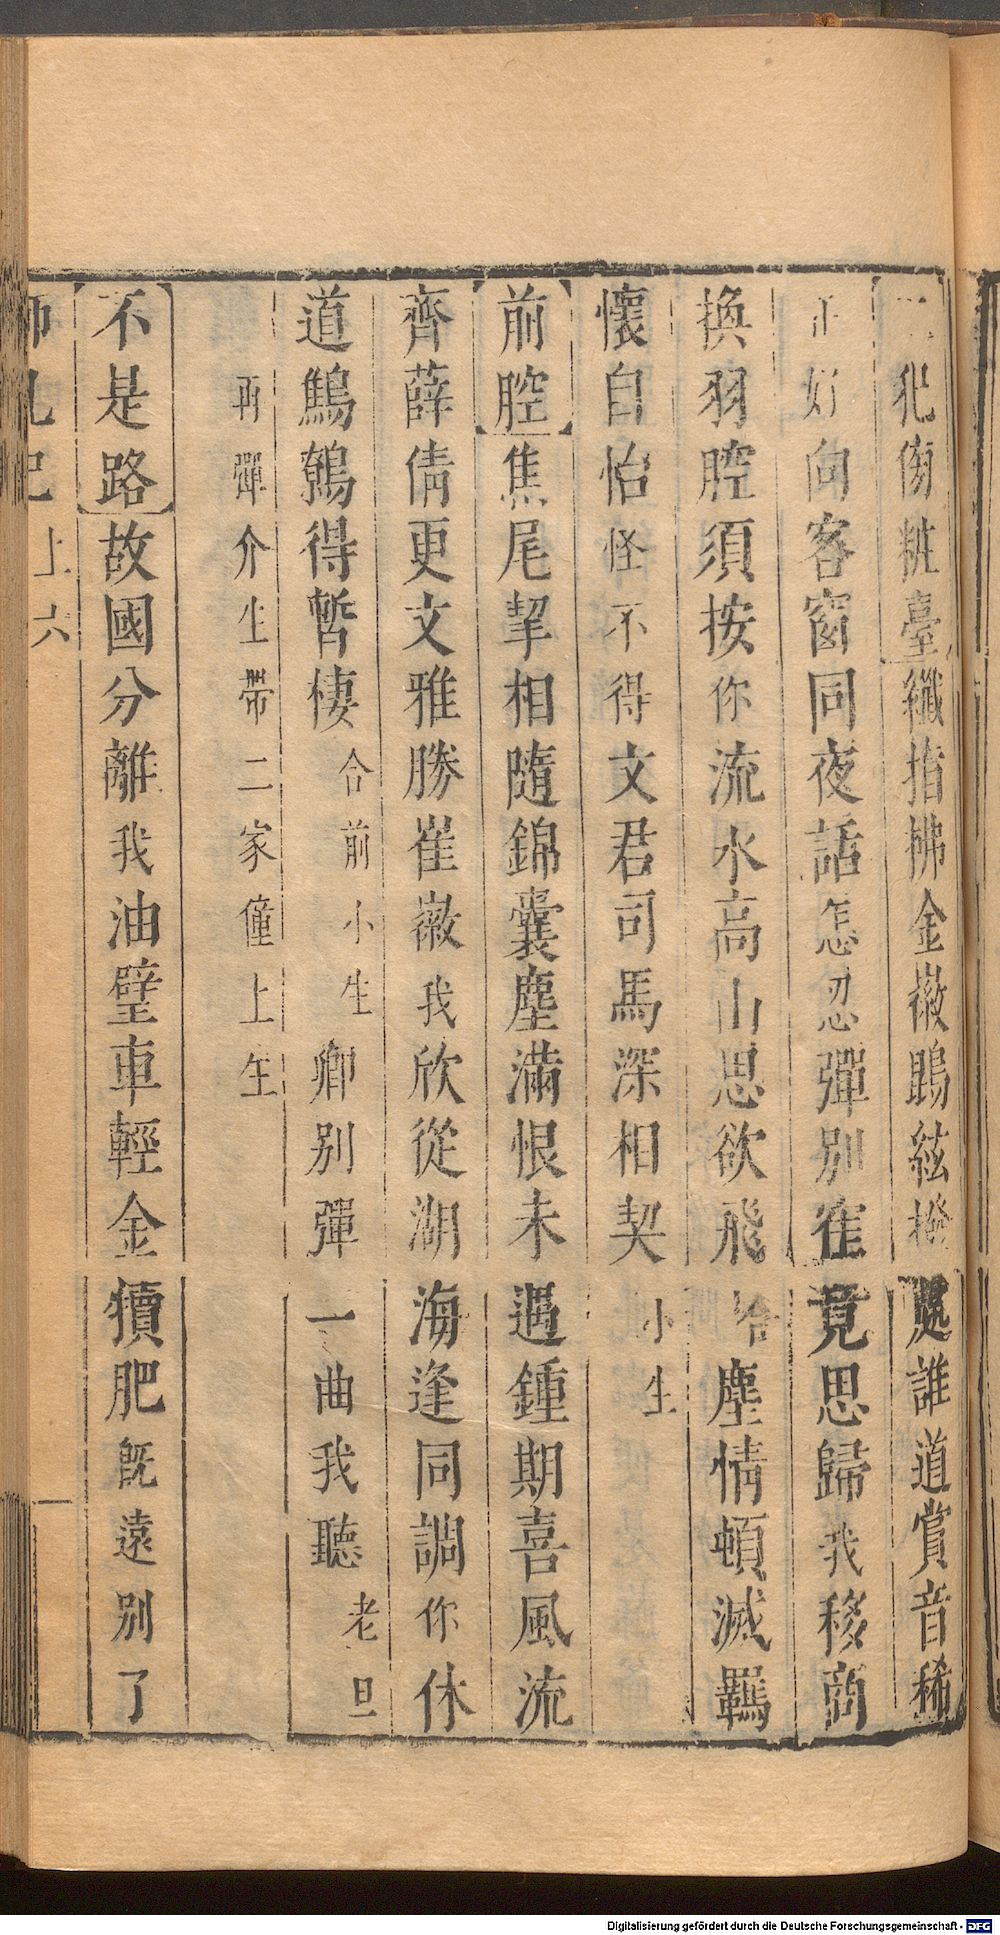 二犯傍粧臺纖指拂金徽鵾絃撥處誰道賞音稀
正好向客窗同夜話怎忍彈別崔竟思歸我移商
換羽腔須按你流水高山思欲飛合塵情頓滅羈
懷自怡怪不得文君司馬深相契小生
前腔焦尾挈相隨錦囊塵滿恨未遇鍾期喜風流
齊薛倩更文雅勝崔徽我欣從湖海逢同調你休
道鷦鷯得暫棲合前小生卿別彈一曲我聽老旦
再彈介生帶二家僮上生
不是路故國分離我油壁車輕金犢肥旣遠別了
上 六
Digitalisierung gefördert durch die Deutsche Forschungsgemeinschaft - DFG